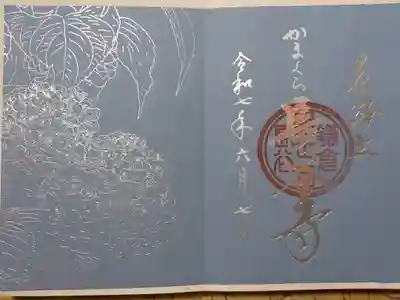 花浄土
かまくら 長谷寺
鎌倉
令和七年六月七日